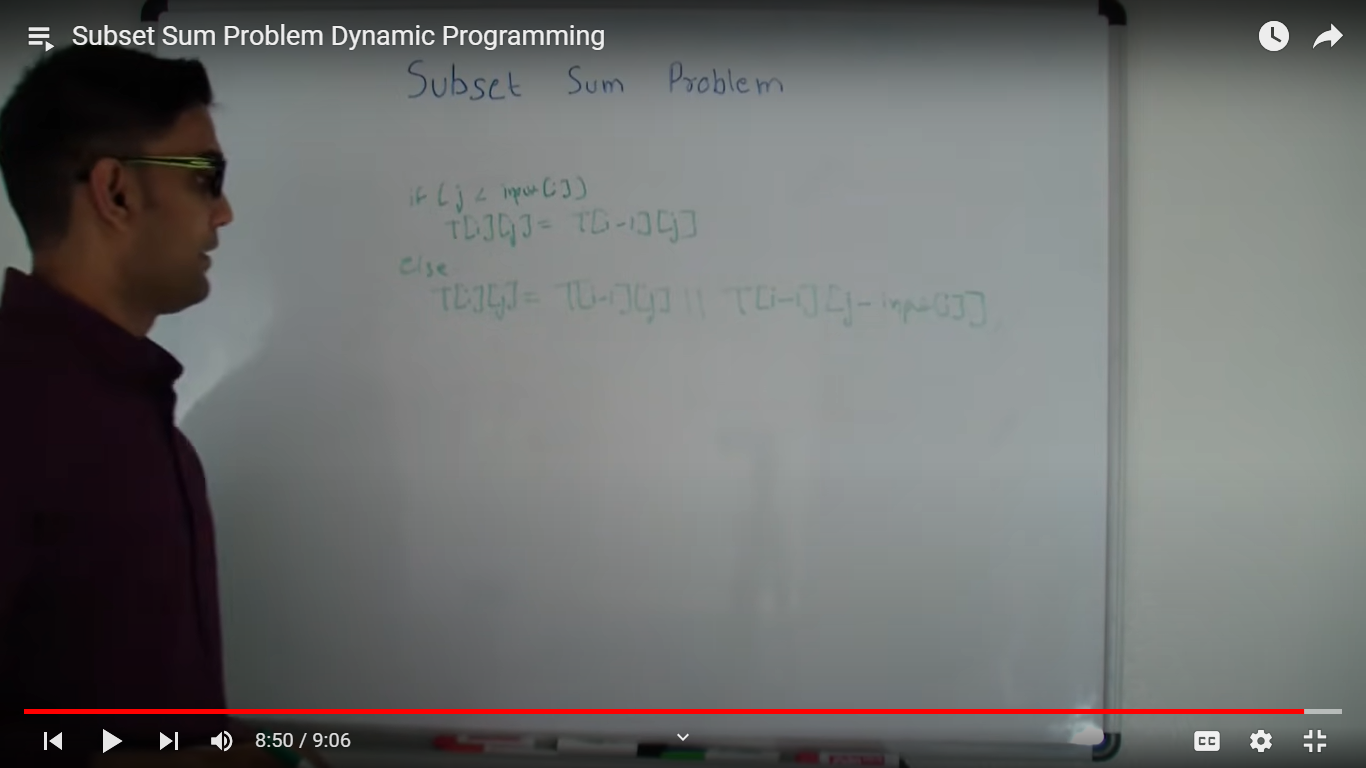 Subset Sum Problem Dynamic Programming
Subset Sum Problem
if (j < input[i])
T[i][j] = T[i-1][j]
Else
T[i][j] = T[i-1][j] || T[i-1][j-input[i]]
8:50 / 9:06
CC